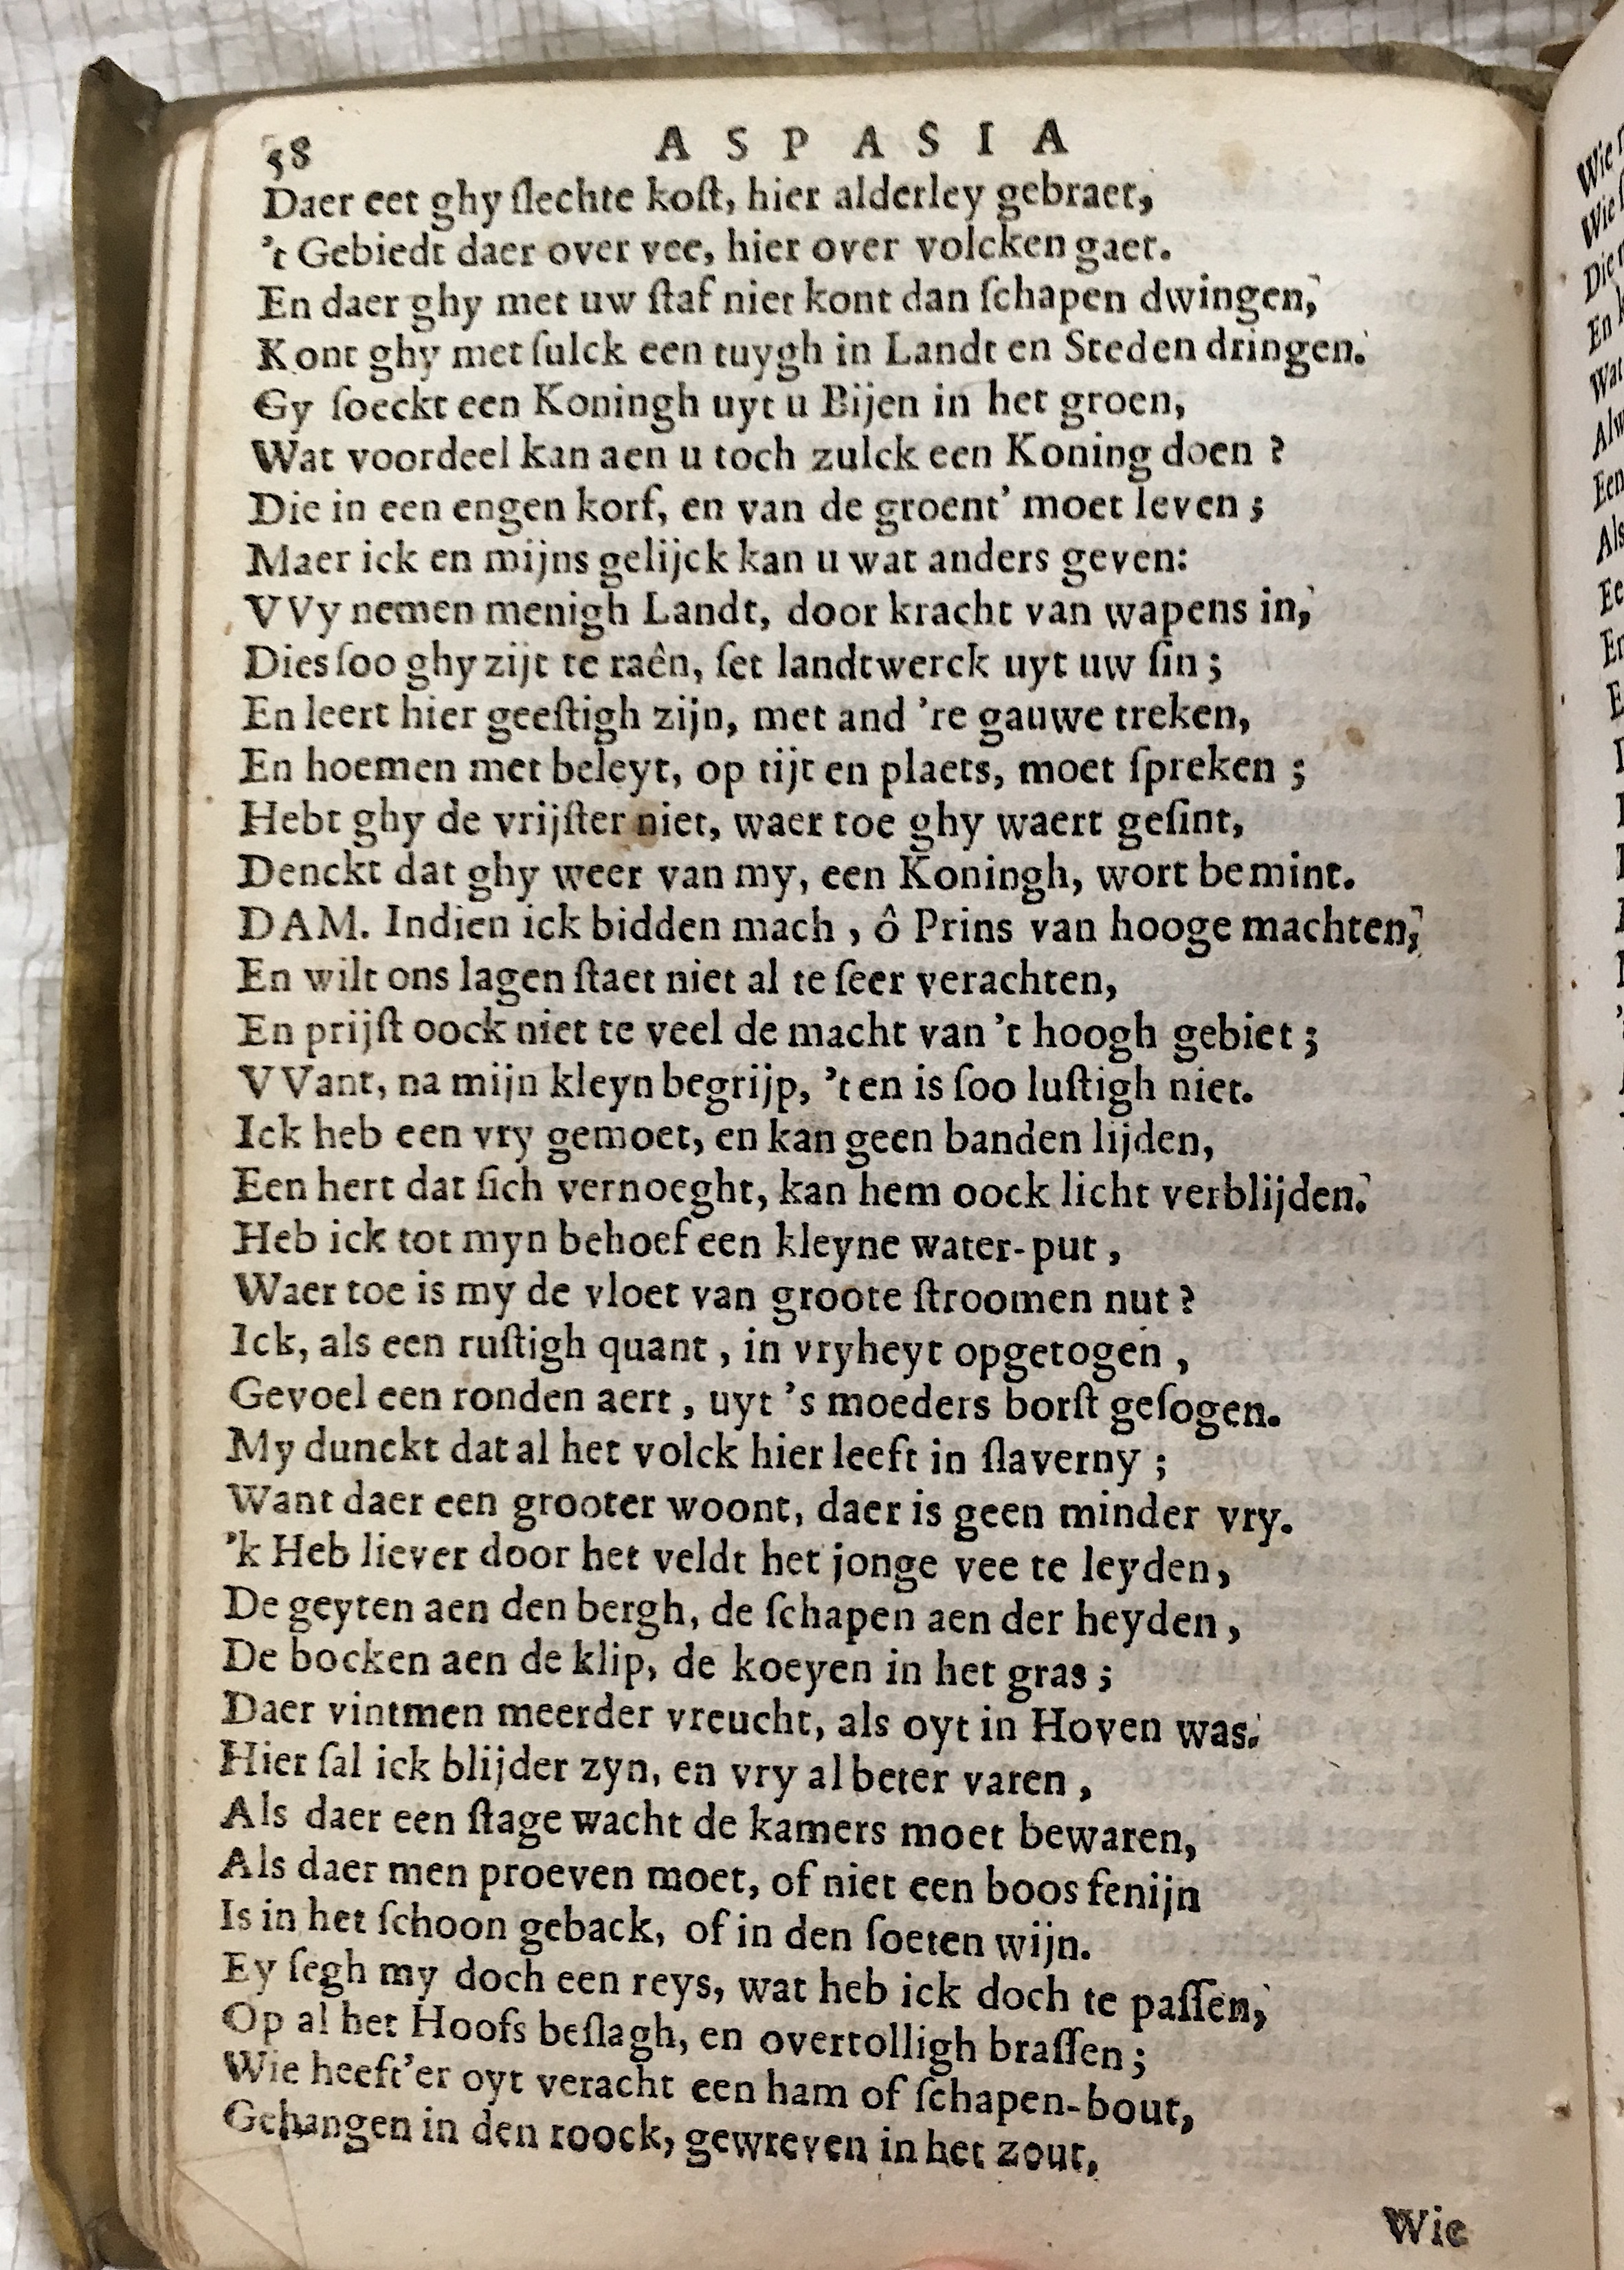 58 ASPASIA
Daer eet ghy ſlechte koſt, hier alderley gebraet,
't Gebiedt daer over vee, hier over volcken gaet.
En daer ghy met uw ſtaf niet kont dan ſchapen dwingen,
Kont ghy met ſulck een tuygh in Landt en Steden dringen.
Gy ſoeckt een Koningh uyt u Bijen in het groen,
Wat voordeel kan aen u toch zulck een Koning doen ?
Die in een engen korf, en van de groent' moet leven ;
Maer ick en mijns gelijck kan u wat anders geven:
VVy nemen menigh Landt, door kracht van wapens in,
Dies ſoo ghy zijt te raên, ſet landtwerck uyt uw ſin ;
En leert hier geeſtigh zijn, met and 're gauwe treken,
En hoemen met beleyt, op tijt en plaets, moet ſpreken ;
Hebt ghy de vrijſter niet, waer toe ghy waert geſint,
Denckt dat ghy weer van my, een Koningh, wort bemint.
DAM. Indien ick bidden mach , ô Prins van hooge machten,
En wilt ons lagen ſtaet niet al te ſeer verachten,
En prijſt oock niet te veel de macht van 't hoogh gebiet ;
VVant, na mijn kleyn begrijp, 't en is ſoo luſtigh niet.
Ick heb een vry gemoet, en kan geen banden lijden,
Een hert dat ſich vernoeght, kan hem oock licht verblijden.
Heb ick tot myn behoef een kleyne water-put ,
Waer toe is my de vloet van groote ſtroomen nut ?
Ick, als een ruſtigh quant , in vryheyt opgetogen ,
Gevoel een ronden aert , uyt 's moeders borſt geſogen.
My dunckt dat al het volck hier leeft in ſlaverny ;
Want daer een grooter woont, daer is geen minder vry.
'k Heb liever door het veldt het jonge vee te leyden,
De geyten aen den bergh, de ſchapen aen der heyden ,
De bocken aen de klip, de koeyen in het gras ;
Daer vintmen meerder vreucht, als oyt in Hoven was.
Hier ſal ick blijder zyn, en vry al beter varen ,
Als daer een ſtage wacht de kamers moet bewaren,
Als daer men proeven moet, of niet een boos fenijn
Is in het ſchoon geback, of in den ſoeten wijn.
Ey ſegh my doch een reys, wat heb ick doch te paſſen,
Op al het Hoofs beſlagh, en overtolligh braſſen ;
Wie heeft'er oyt veracht een ham of ſchapen-bout,
Gehangen in den roock, gewreven in het zout,
Wie